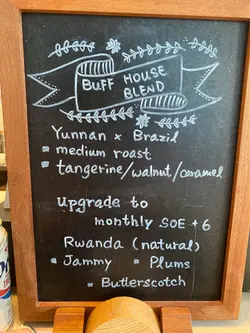 BUFF HOUSE
BLEND
Yunnan x Brazil
- medium roast
- tangerine/walnut/caramel
upgrade to
monthly SOE +6
Rwanda (natural)
- Jammy - Plums
- Butterscotch